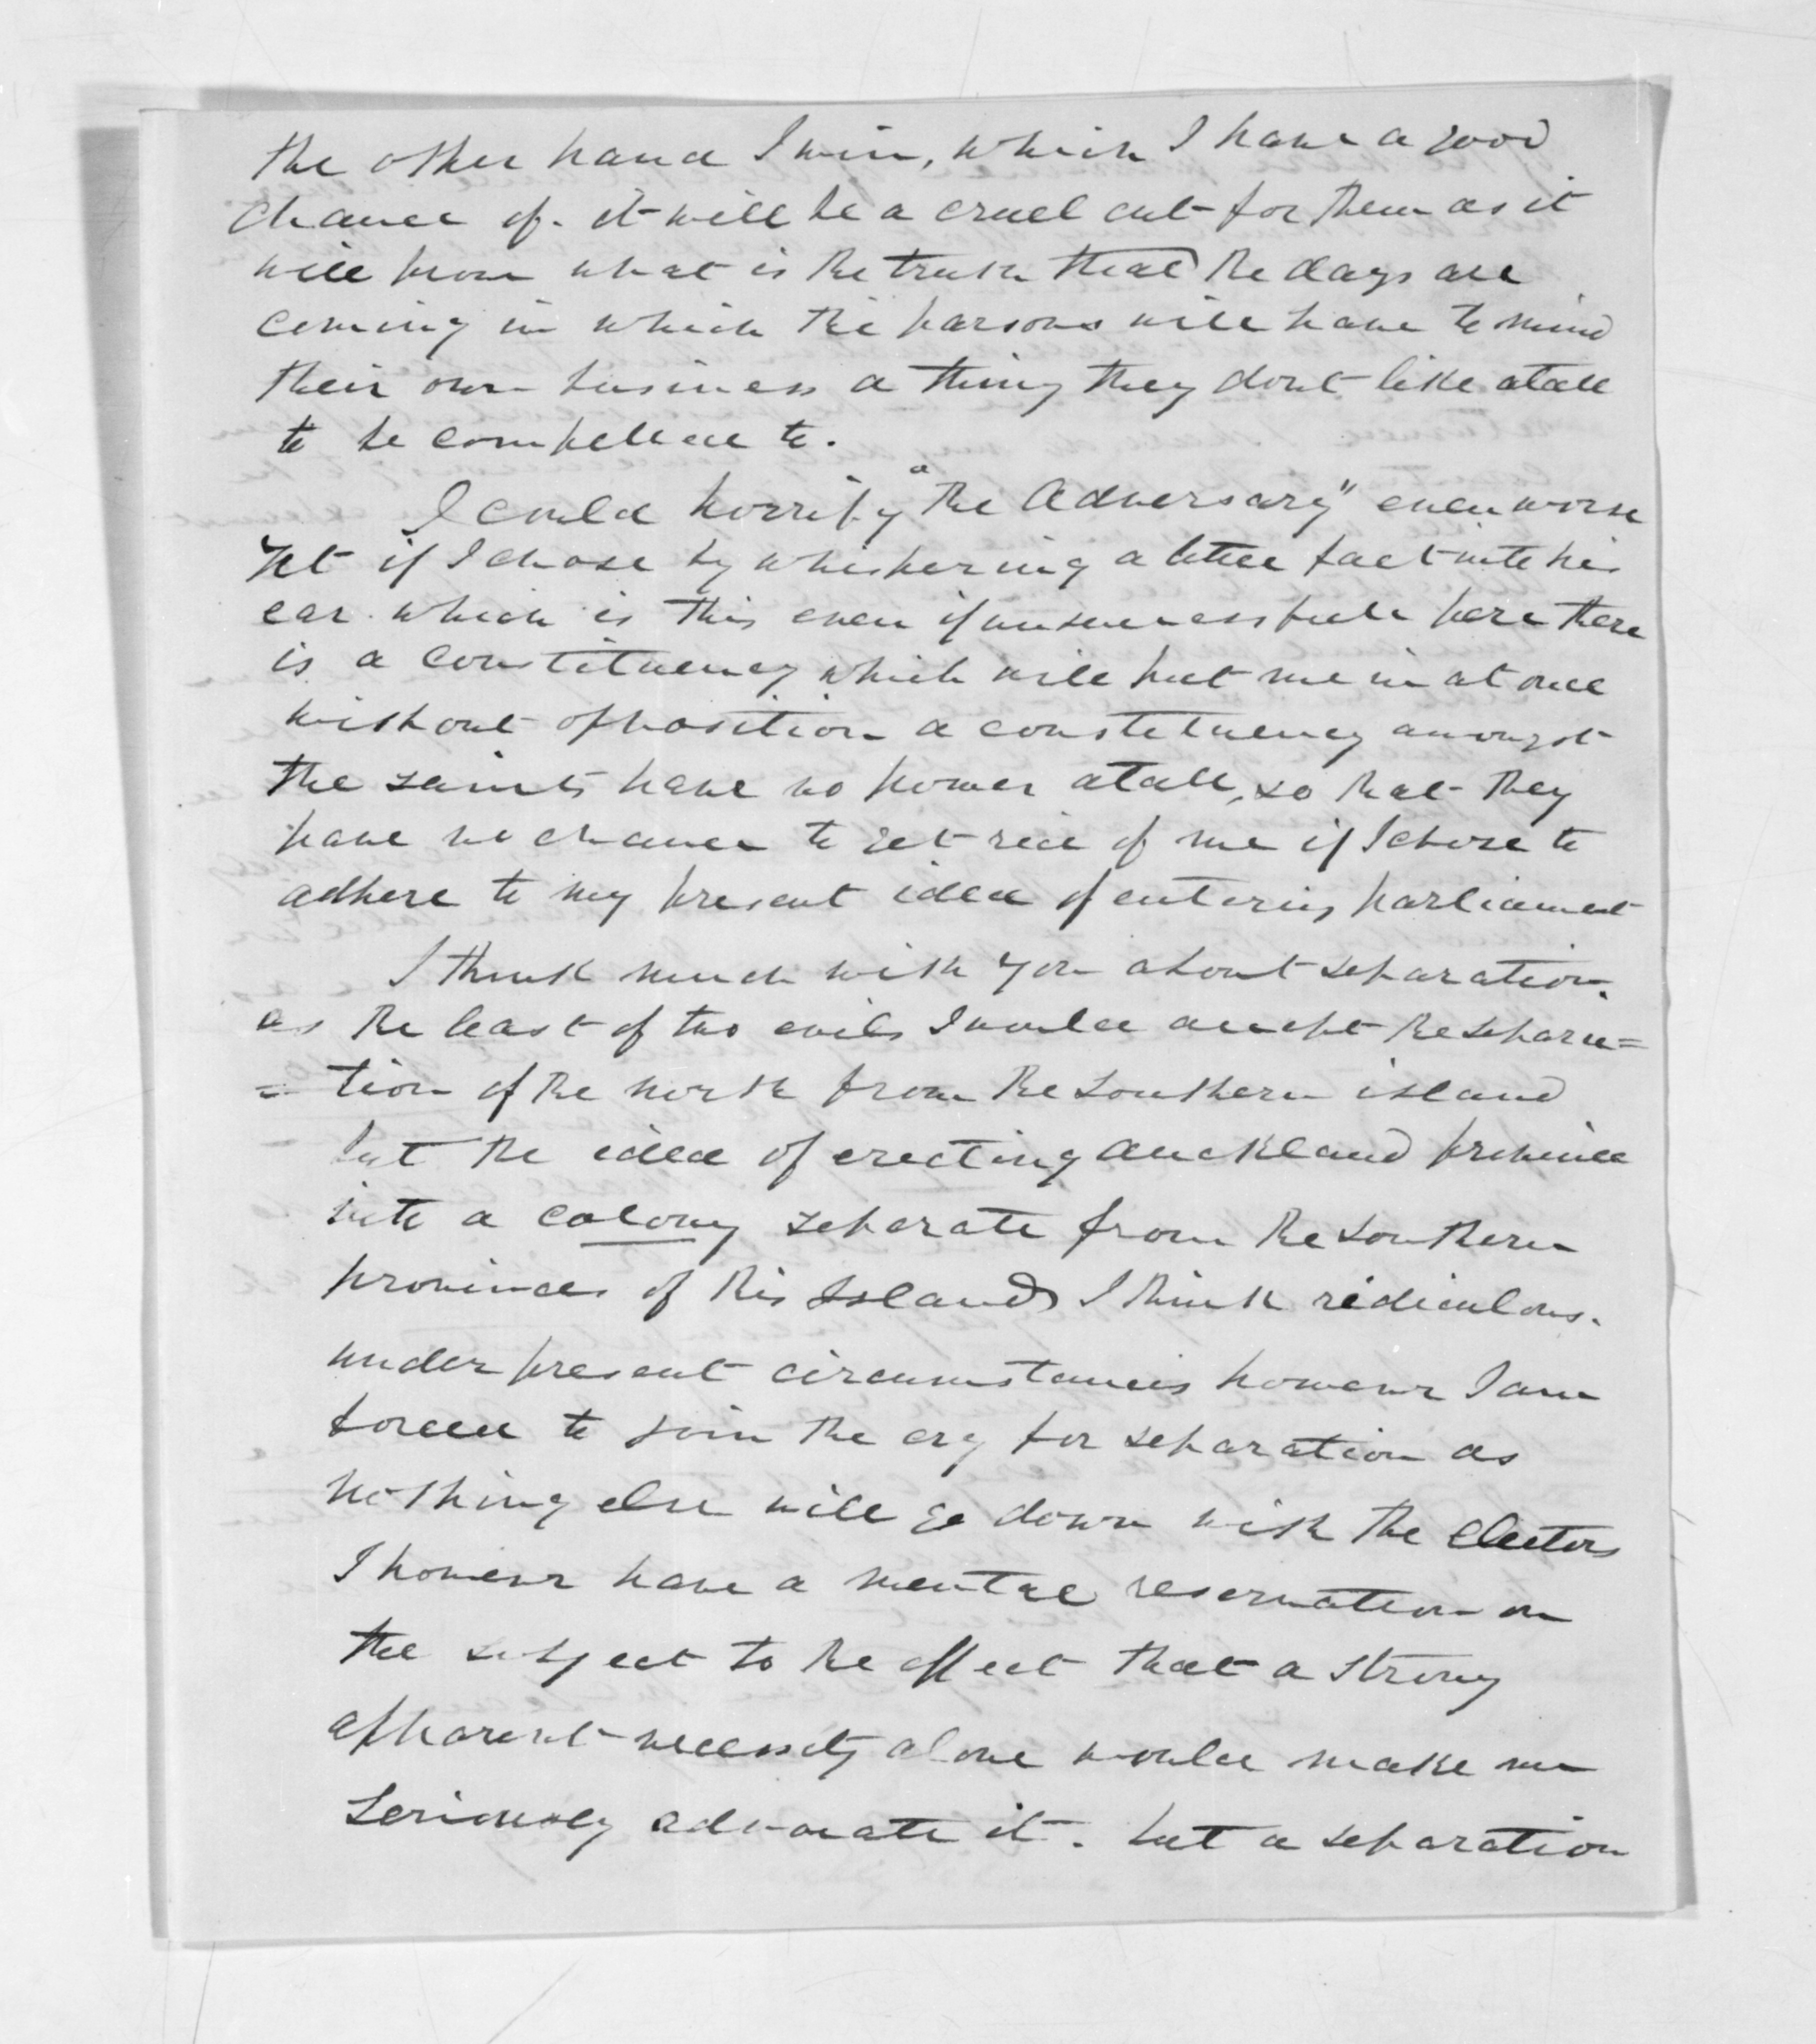 the other hand I win, which I have a good
chance of. it will be a cruel cut for them as it
will prove what is the truth that the days are
coming in which the parsons will have to mind
their own business a thing they dont like atall
to be compelled to.
I could horrify "the Adversary" even worse
yet if I chose by whispering a little fact into his
ear. which is this even if unsuccessfull here there
is a constituency which will put me in at once
without opposition a constituency amongst
the saints have no power atall, so that they
have no chance to get rid of me if I chose to
adhere to my present idea of entering parliament
I think much with you about separation.
as the least of two evils I would accept the separa=
=tion of the north from the southern island
but the idea of erecting Auckland province
into a colony separate from the southern
provinces of this Island I think ridiculous.
under present circumstances however I am
forced to join the cry for separation as
nothing else will go down with the Electors
I however have a mental reservation on
the subject to the effect that a strong
apparent necessity alone would make me
seriously advocate it. but a separation